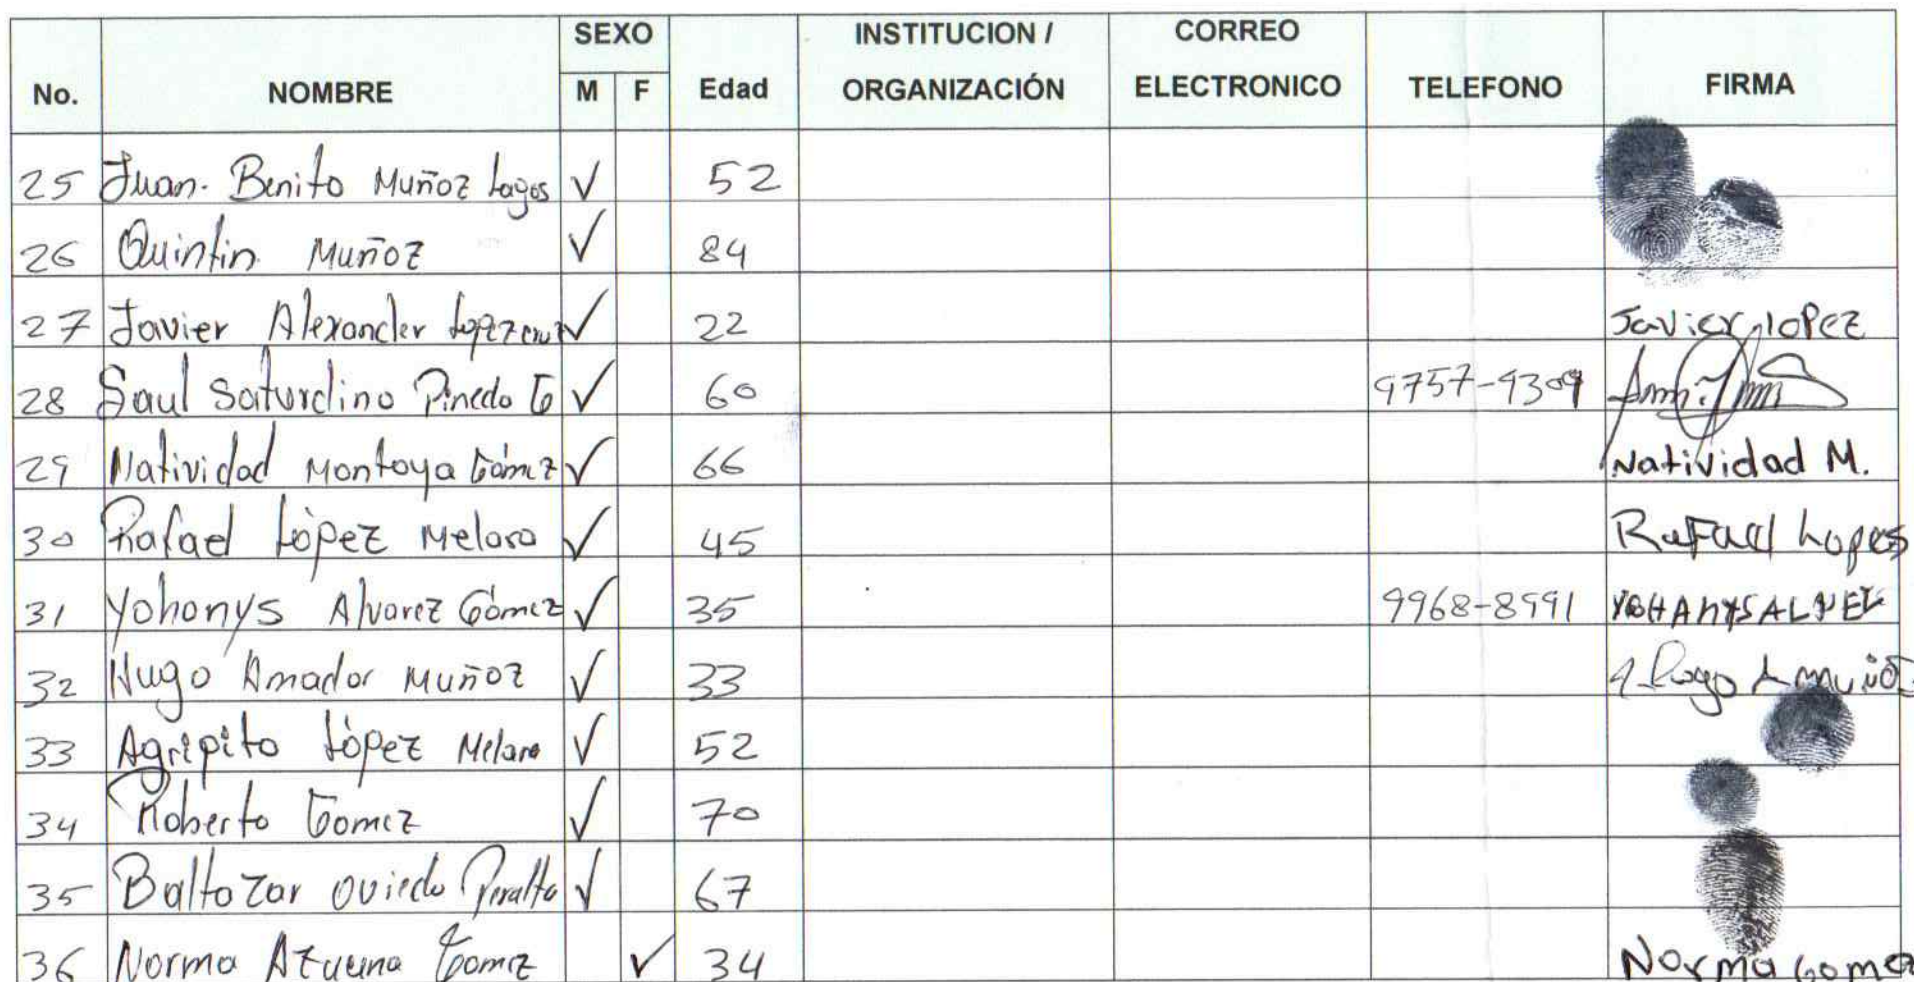 SEXO INSTITUCION / CORREO
No. NOMBRE M F Edad ORGANIZACIÓN ELECTRONICO TELEFONO FIRMA
25 Juan. Benito Muñoz Lagos √ 52
26 Quintin Muñoz √ 84
27 Javier Alexander Lopez cruz √ 22 Javier lopez
28 Saul Saturdino Pinedo G √ 60 9757-9309
29 Natividad Montoya Gómez √ 66 Natividad M.
30 Rafael López Melara √ 45 Rafael Lopes
31 Yohanys Alvarez Gómez √ 35 9968-8991
32 Hugo Amador Muñoz √ 33 Hugo A muñoz
33 Agripito López Melara √ 52
34 Roberto Gomez √ 70
35 Baltazar Oviedo Peralta √ 67
36 Norma Azucena Gomez √ 34 Norma Gomez